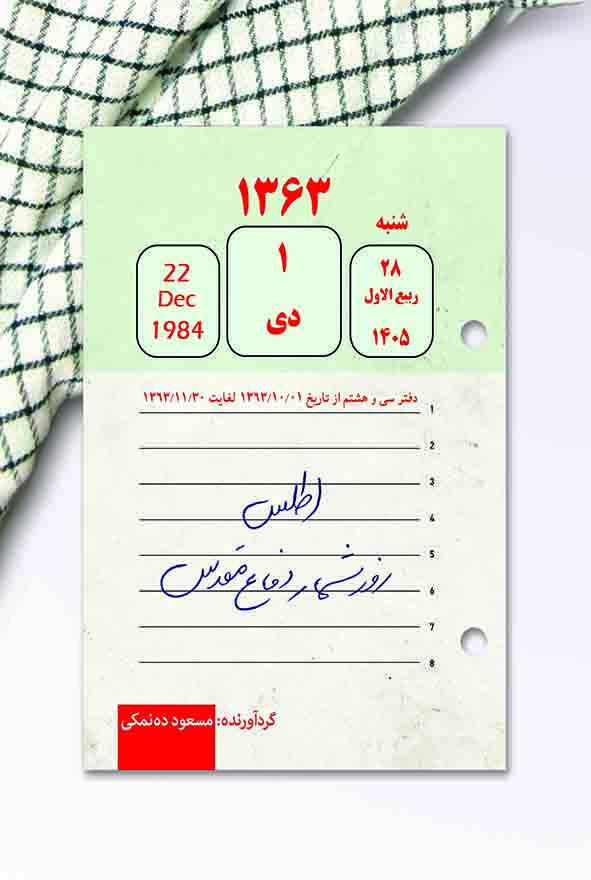 ۱۳۶۳
شنبه
۲۸
ربیع الاول
۱۴۰۵
۱
دی
22
Dec
1984
دفتر سی و هشتم از تاریخ ۱۳۶۳/۱۰/۰۱ لغایت ۱۳۶۳/۱۱/۳۰
1
2
3
اطلس
4
5
روزشمار دفاع مقدس
6
7
8
گردآورنده: مسعود ده‌نمکی